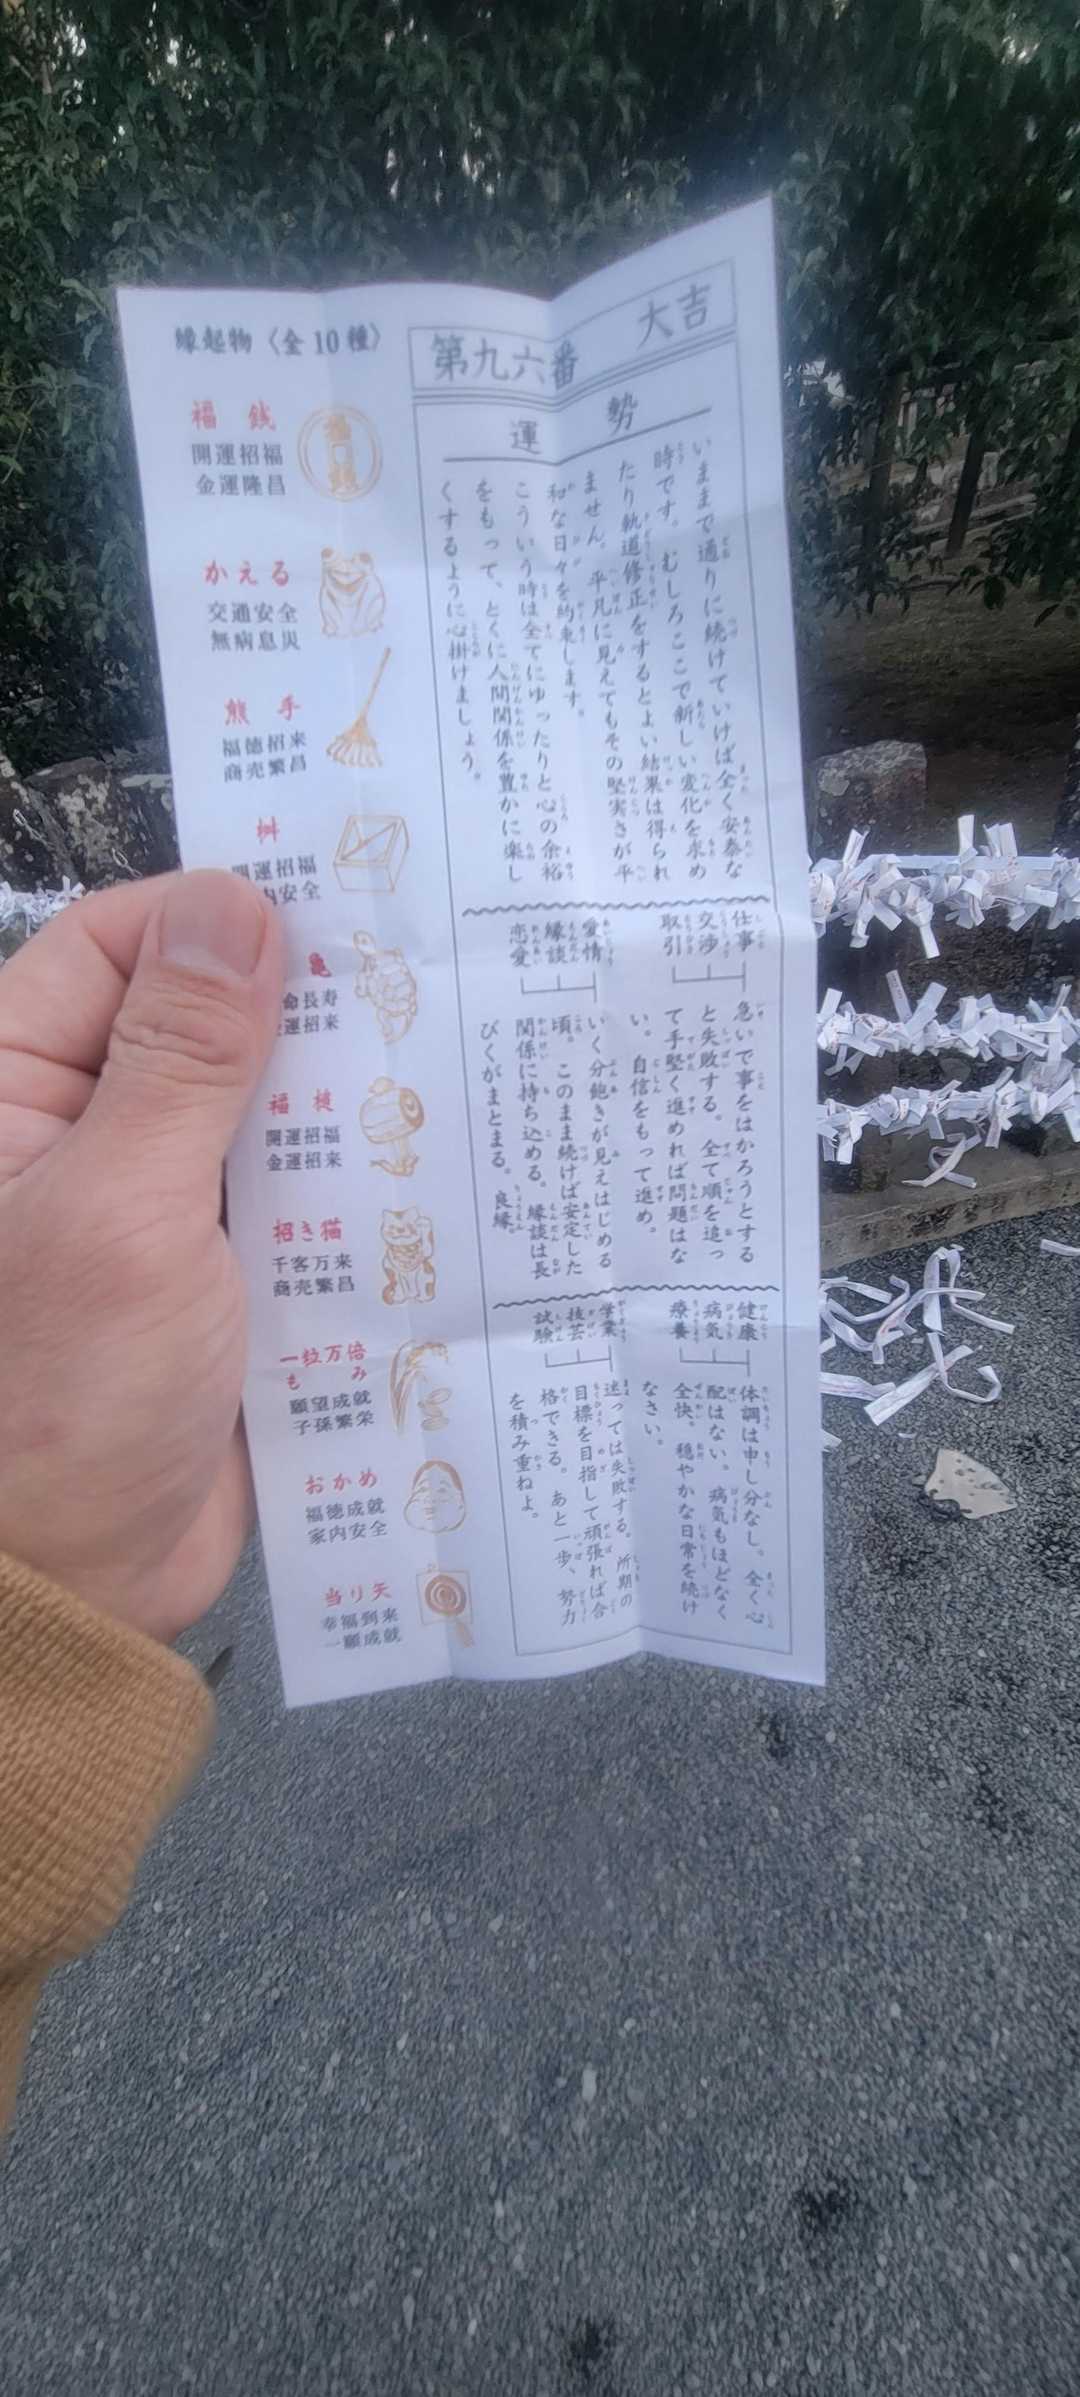 大吉
第九六番
運勢
いままで通りに続けていけば全く安泰な
時です。むしろここで新しい変化を求め
たり軌道修正をするとよい結果は得られ
ません。平凡に見えてもその堅実さが平
和な日々を約束します。
こういう時は全てにゆったりと心の余裕
をもって、とくに人間関係を豊かに楽し
くするように心掛けましょう。
仕事
交渉
取引
急いで事をはかろうとする
と失敗する。全て順を追っ
て手堅く進めれば問題はな
い。自信をもって進め。
愛情
縁談
恋愛
いく分飽きが見えはじめる
頃。このまま続けば安定した
関係に持ち込める。縁談は長
びくがまとまる。良縁。
健康
病気
療養
体調は申し分なし。全く心
配はない。病気もほどなく
全快。穏やかな日常を続け
なさい。
学業
技芸
試験
迷っては失敗する。所期の
目標を目指して頑張れば合
格できる。あと一歩、努力
を積み重ねよ。
縁起物〈全10種〉
福銭
開運招福
金運隆昌
かえる
交通安全
無病息災
熊手
福徳招来
商売繁昌
桝
開運招福
内安全
亀
命長寿
運招来
福槌
開運招福
金運招来
招き猫
千客万来
商売繁昌
一粒万倍
もみ
願望成就
子孫繁栄
おかめ
福徳成就
家内安全
当り矢
幸福到来
一願成就